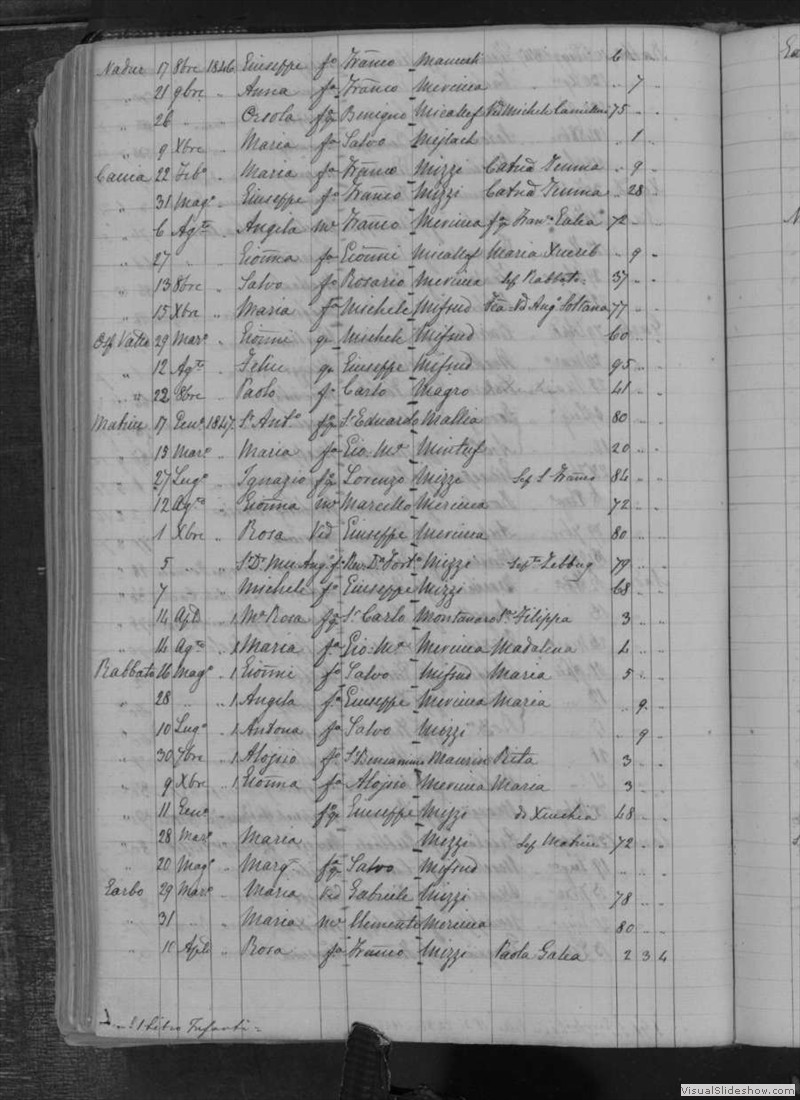 Nadur 17 8bre 1846 Giuseppe fo Franco Mamueti 6
" 21 9bre " Anna fa Franco Mercieca " 7
" 26 " " Orsola fq Benigno Micallef Vd Michele Camilleri 75
" 9 Xbre " Maria fa Salvo Mejlach " 1
Caccia 22 Febo " Maria fa Franco Mizzi Catnā Tumma " 9
" 31 Mago " Giuseppe fo Franco Mizzi Catnā Tumma " 28
" 6 Agto " Angela mo Franco Mercieca fq Franco Galea 72
" 27 " " Gioñna fa Gioñni Micallef Maria Xuereb " 9
" 13 8bre " Salvo fo Rosario Mercieca Sef Rabbato 37
" 15 Xbre " Maria fa Michele Mifsud Vd Ango Soltana 77
29 Maro " Gioñni qm Michele Mifsud 60
" 12 Agto " Felice qm Giuseppe Mifsud 95
" 22 8bre " Paolo fo Carlo Magro 41
Matrice 17 Geno 1847 Sr Anto fq Sr Eduardo Mallia 80
" 13 Maro " Maria fa Gio. Ma Mintuf 20
" 27 Lugo " Ignazio fq Lorenzo Mizzi Sef S. Franco 84
" 12 Agto " Gioñna mo Marcello Mercieca 72
" 1 Xbre " Rosa Vid Giuseppe Mercieca 80
" 5 " " Mizzi Zebbug 79
" 7 Michele fo Giuseppe Mizzi 68
" 14 Aple 1 Ma Rosa fq Sr Carlo Montanaro Sa Filippa 3
" 14 Agto 1 Maria fa Gio. Ma Mercieca Madalena 4
Rabbato 16 Mago 1 Gioñni fo Salvo Mifsud Maria 5
" 28 " 1 Angela fa Giuseppe Mercieca Maria " 9
" 10 Lugo 1 Antona fa Salvo Mizzi " 9
" 30 7bre 1 Alojsio fo Sr Beniamino Maurin Rita 3
" 9 Xbre 1 Gioñna fa Alojsio Mercieca Maria 3
" 11 Geno fq Giuseppe Mizzi di Xeuchia 48
" 28 Maro " Maria Mizzi Sef Matrice 72
" 20 Mago " Marg fq Salvo Mifsud
Garbo 29 Maro " Maria Vid Gabriele Mizzi 78
" 31 " Maria mo Clemente Mercieca 80
" 11 Aple " Rosa fa Franco Mizzi Paola Galea 2 3 4
21 Libro Infanti =
VisualSlideshow.com